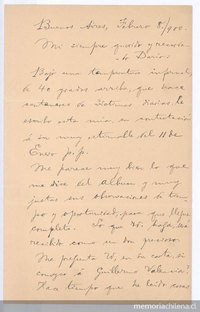 Buenos Aires, Febrero 8/900.
Mi siempre querido y recorda-
do Darío:
Bajo una temperatura infernal,
de 40 grados arriba, que hace
centenares de víctimas diarias, le
escribo esta mía, en contestación
á su muy estimable del 11 de
Enero ppdo.
Me parece muy bien lo que
me dice del album y muy
justas sus observaciones de tiem-
po y oportunidad, para que llegue
completo. Lo que Vd. haga, será
recibido como un don precioso.
Me pregunta Vd. en su carta, si
conozco á Guillermo Valencia?
Hace tiempo que he leído cosas
memoriachilena.cl